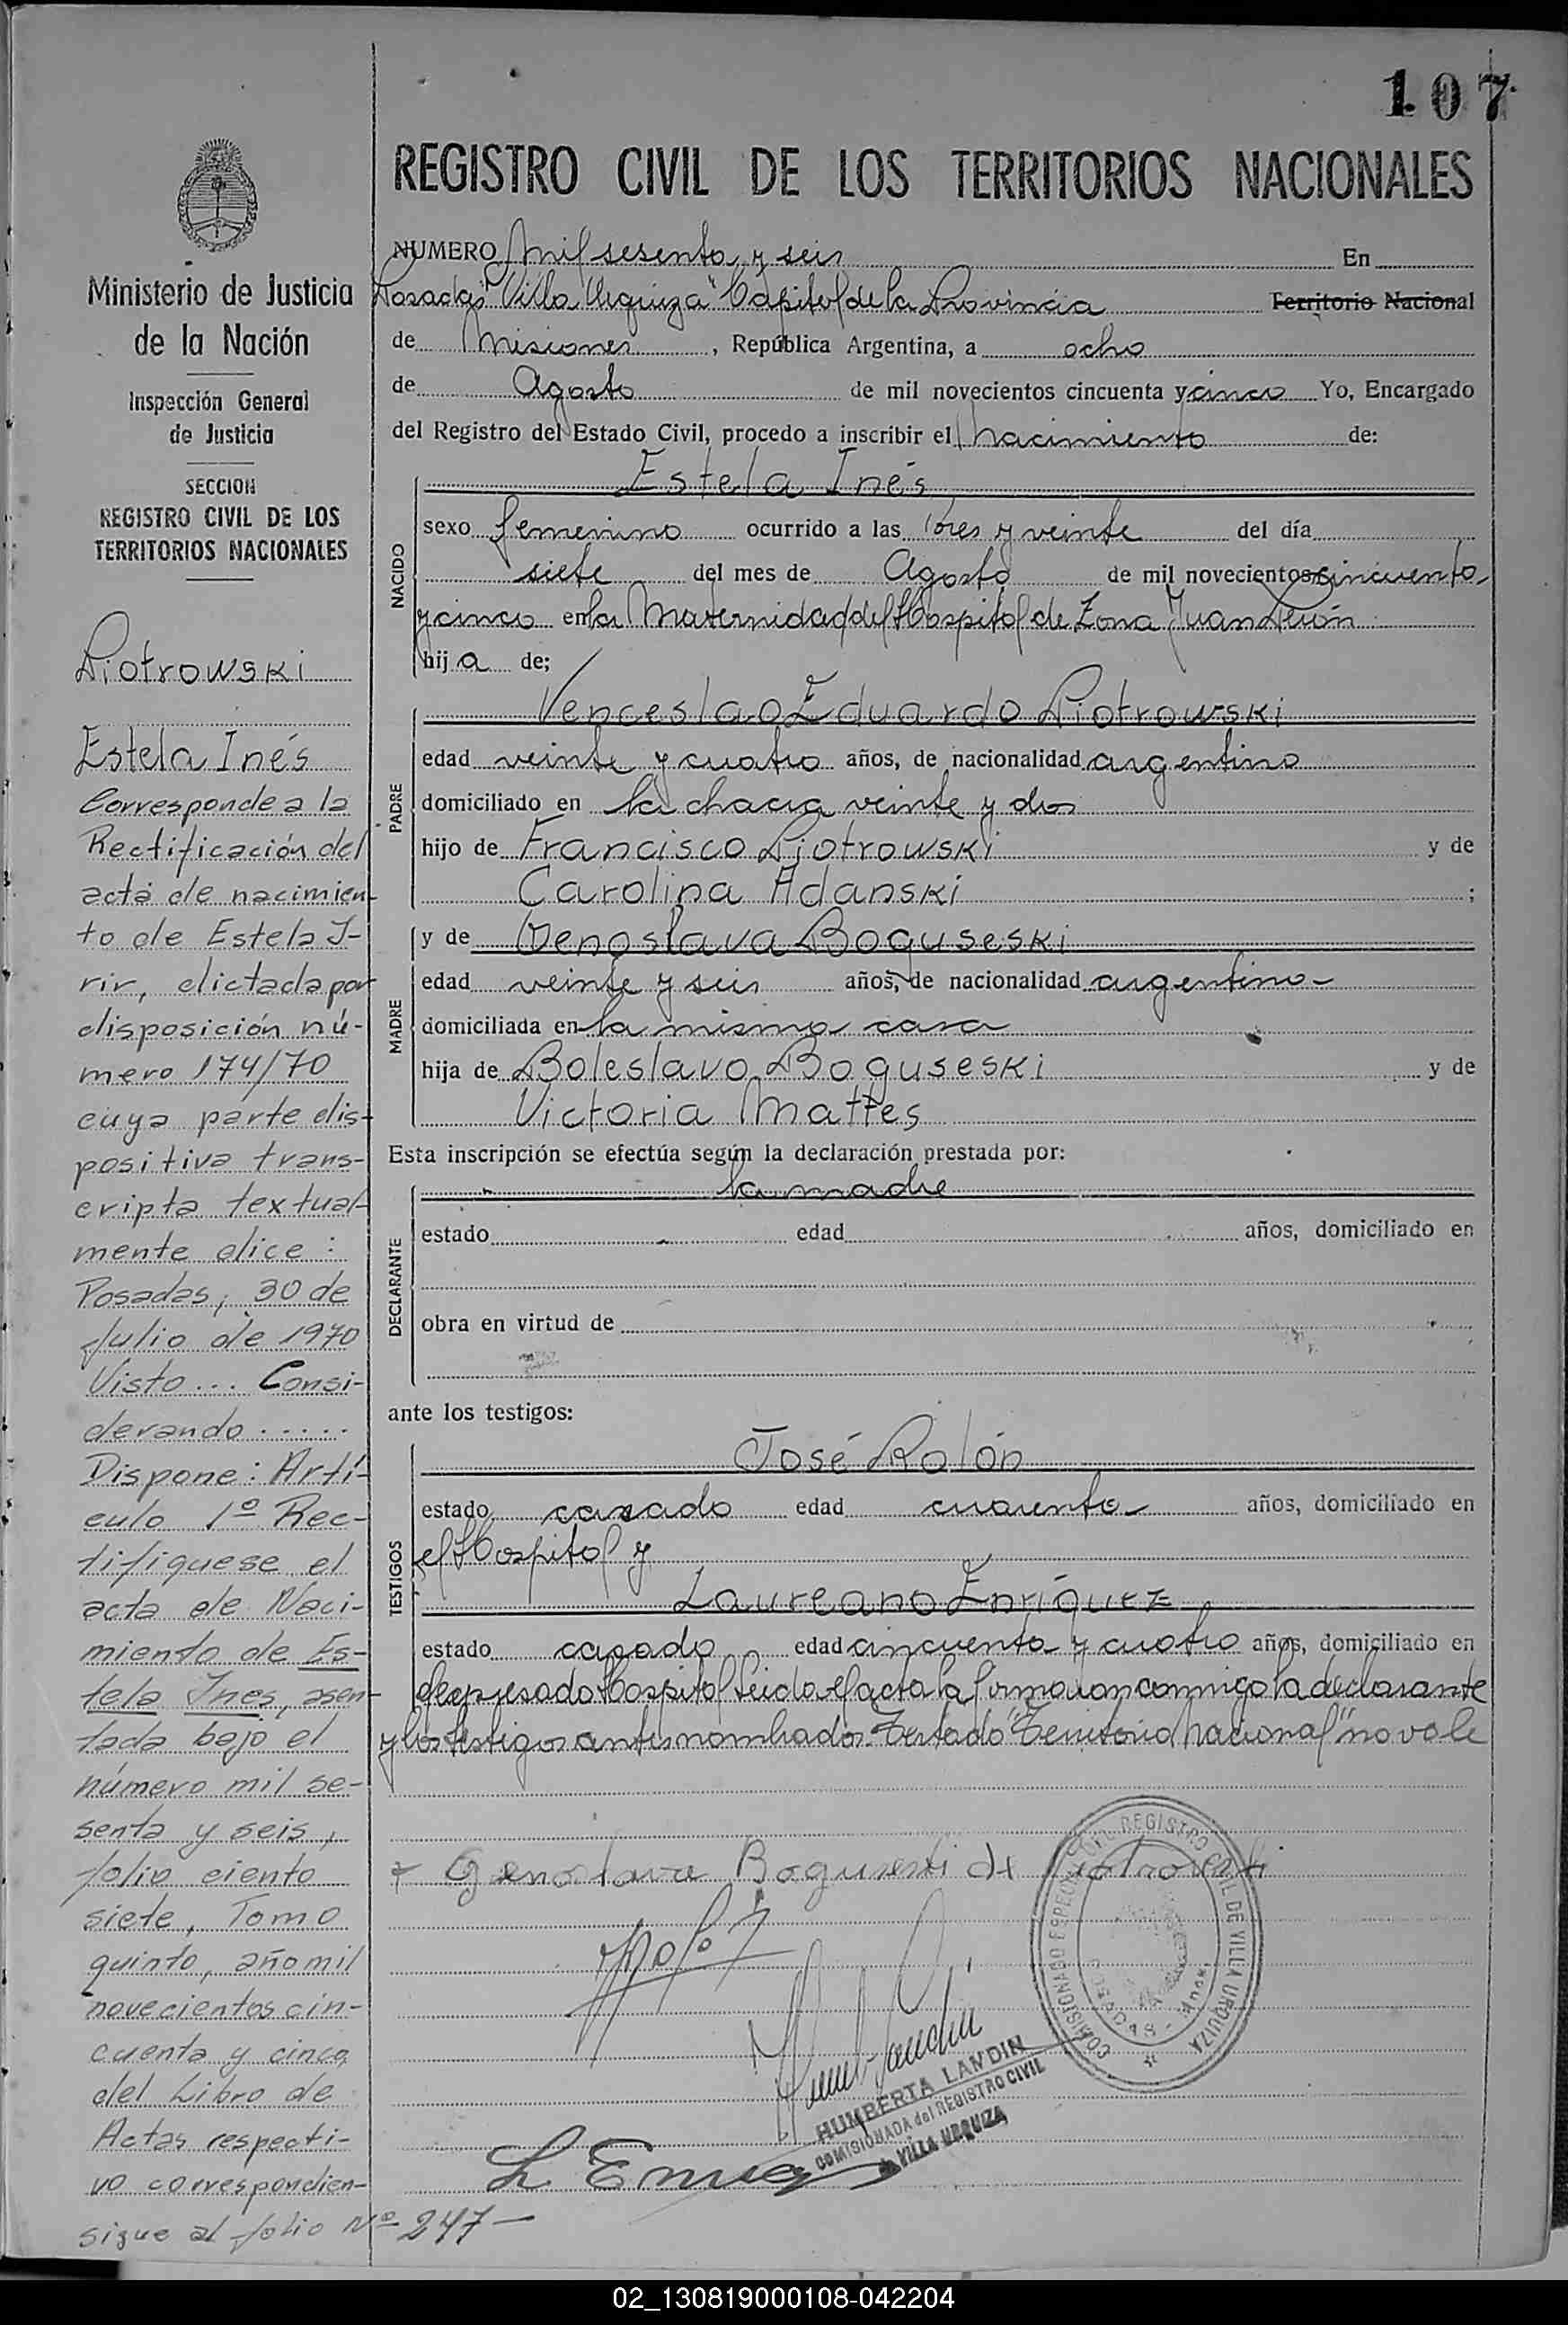 107
REGISTRO CIVIL DE LOS TERRITORIOS NACIONALES
NUMERO mil sesenta y seis En
Posadas "Villa Urquiza" Capital de la Provincia Territorio Nacional
de Misiones, República Argentina, a ocho
de Agosto de mil novecientos cincuenta y cinco Yo, Encargado
del Registro del Estado Civil, procedo a inscribir el nacimiento de:
Estela Inés
NACIDO
sexo femenino ocurrido a las tres y veinte del día
siete del mes de Agosto de mil novecientos cincuenta
y cinco en la Maternidad del Hospital de Zona Juan Perón
hija de;
Venceslao Eduardo Piotrowski
PADRE
edad veinte y cuatro años, de nacionalidad argentino
domiciliado en la chacra veinte y dos
hijo de Francisco Piotrowski y de
Carolina Adanski ;
y de Genoslava Boguseski
MADRE
edad veinte y seis años, de nacionalidad argentina
domiciliada en la misma casa
hija de Boleslavo Boguseski y de
Victoria Mattes
Esta inscripción se efectúa según la declaración prestada por:
la madre
DECLARANTE
estado edad años, domiciliado en
obra en virtud de
ante los testigos:
José Rolón
TESTIGOS
estado casado edad cuarenta años, domiciliado en
el Hospital y
Laureano Enríquez
estado casado edad cincuenta y cuatro años, domiciliado en
el expresado Hospital Leida el acta la firmaron conmigo la declarante
y los testigos antes nombrados. Testado "Territorio Nacional" no vale
Genoslava Boguseski de Piotrowski
HUMBERTA LANDIN
COMISIONADA del REGISTRO CIVIL
VILLA URQUIZA
REGISTRO CIVIL DE VILLA URQUIZA
Ministerio de Justicia
de la Nación
Inspección General
de Justicia
SECCION
REGISTRO CIVIL DE LOS
TERRITORIOS NACIONALES
Piotrowski
Estela Inés
Corresponde a la
Rectificación del
acta de nacimien-
to de Estela I-
rir, dictada por
disposición nú-
mero 174/70
cuya parte dis-
positiva trans-
cripta textual-
mente dice:
Posadas, 30 de
Julio de 1970
Visto... Consi-
derando.....
Dispone: Artí-
culo 1º Rec-
tifiquese el
acta de Naci-
miento de Es-
tela Ines, asen-
tada bajo el
número mil se-
senta y seis,
folio ciento
siete, Tomo
quinto, año mil
novecientos cin-
cuenta y cinco,
del Libro de
Actas respecti-
vo correspondien-
sigue al folio Nº 247-
02_130819000108-042204